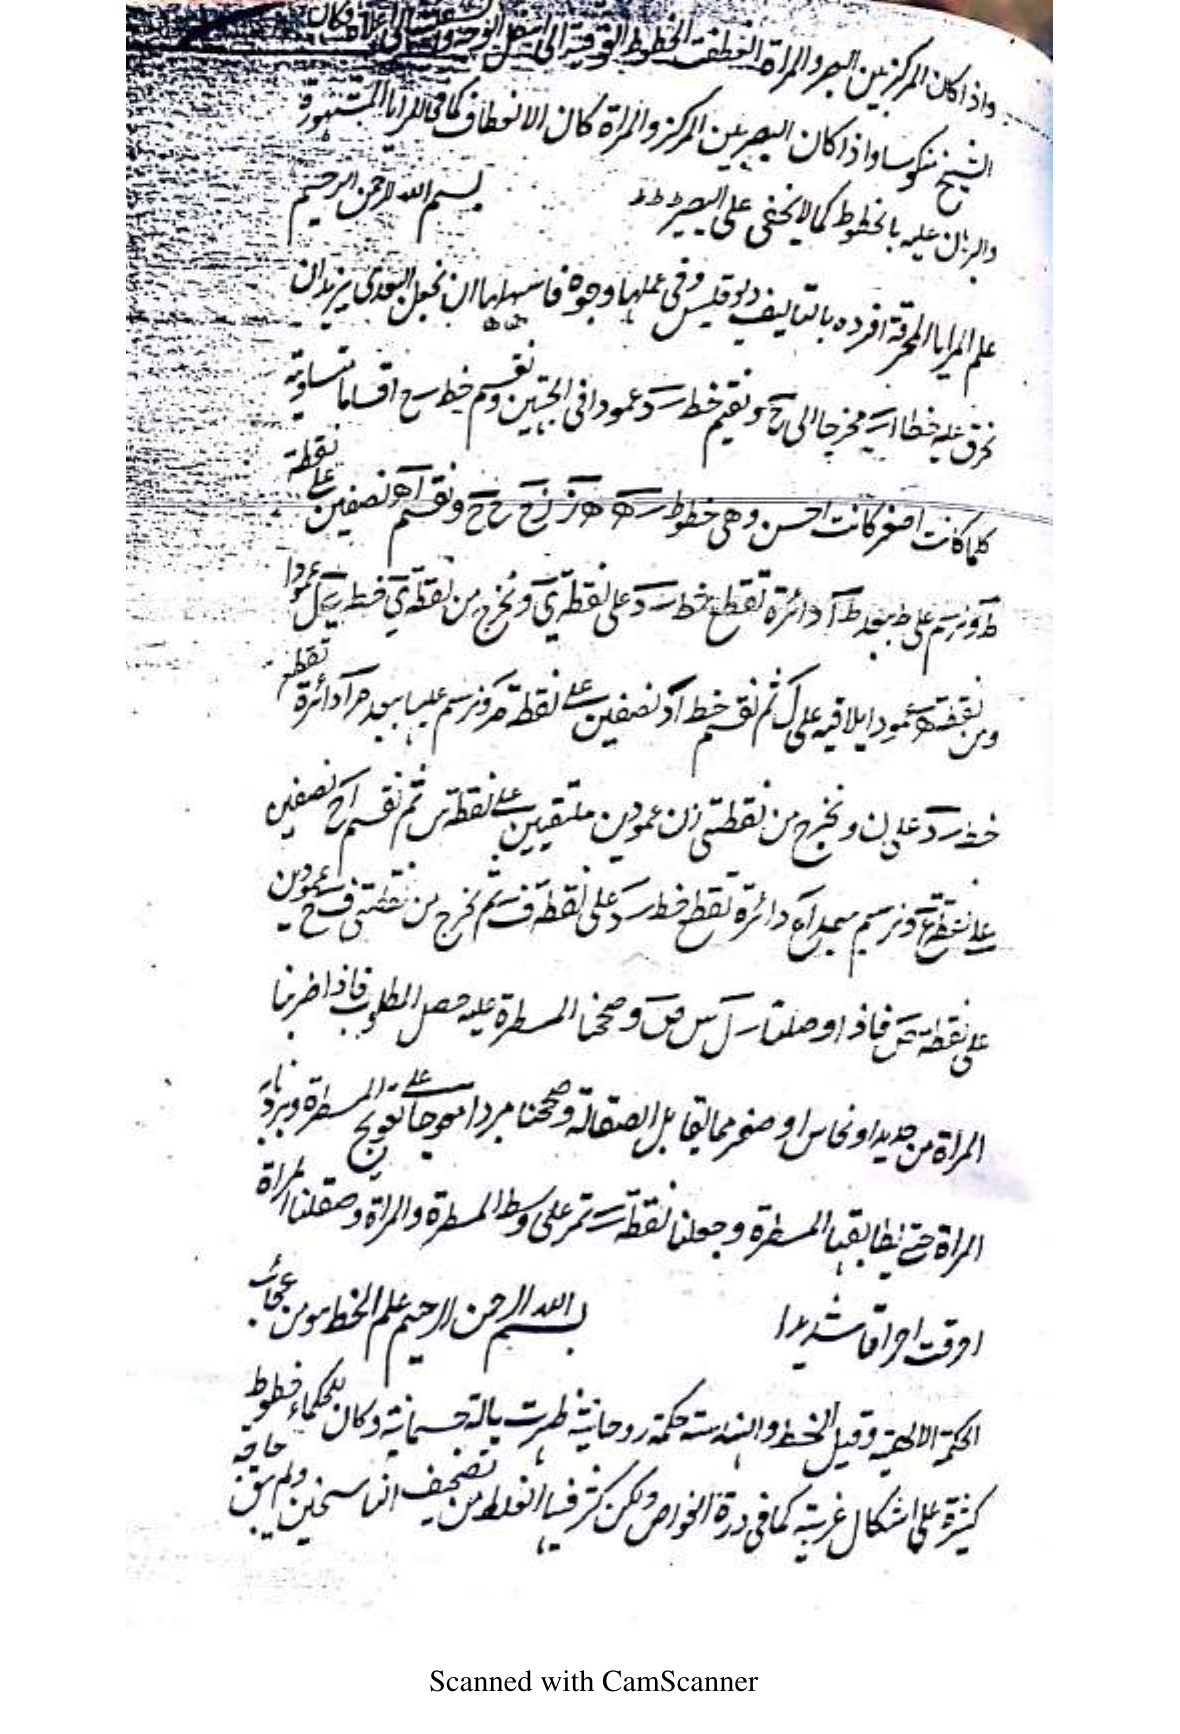 واذا كان المركز بين البصر والمراة انعطفت الخطوط الفوقية الى اسفل الوجه والسفلية الى اعلاه وكان
الشبح منكوسا واذا كان البصر بين المركز والمراة كان الانعطاف كما فى المرايا المشهورة
والبرهان عليه بالخطوط كما لا يخفى على البصير بسم الله الرحمن الرحيم
علم المرايا المحرقة افرده بالتاليف ديوقليس وفى عملها وجوه فاسهلها ان نجعل البعد الذى نريد ان
نحرق عليه خطا اب مخرجا الى ح ونقيم خط ب د عمودا فى الجهتين ونقسم خط ب ح اقساما متساوية
كلما كانت اصغر كانت احسن وهى خطوط ب ه ه ز ز ح ونقسم اه نصفين على نقطة
ط ونرسم على ط ببعد ط ا دائرة تقطع خط ب د على نقطة ى ونخرج من نقطة ى خط ى ك عمودا
ومن نقطة ه عمودا يلاقيه على ك ثم نقسم خط از نصفين على نقطة م ونرسم عليها ببعد م ا دائرة تقطع
خط ب د على ن ونخرج من نقطتى ز ن عمودين ملتقيين على نقطة س ثم نقسم اح نصفين
على نقطة ع ونرسم ببعد اع دائرة تقطع خط ب د على نقطة ف ثم نخرج من نقطتى ف ح عمودين
على نقطة ص فاذا وصلنا ب ك س ص وصححنا المسطرة عليه حصل المطلوب فاذا ضربنا
المراة من حديد او نحاس او صفر مما يقابل الصقالة وصححنا مبردا معوجا على تعويج المسطرة وبردنا به
المراة حتى يطابقها المسطرة وجعلنا نقطة ب تمر على وسط المسطرة والمراة وصقلنا المراة
احرقت احراقا شديدا بسم الله الرحمن الرحيم علم الخط هو من عجائب
الحكمة الالهية وقيل الخط والهندسة حكمة روحانية ظهرت بالة جسمانية وكان للحكماء خطوط
كثيرة على اشكال غريبة كما فى درة الخواص ولكن كثر فيها الغلط من تصحيف الناسخين ولم يبق حاجة
Scanned with CamScanner